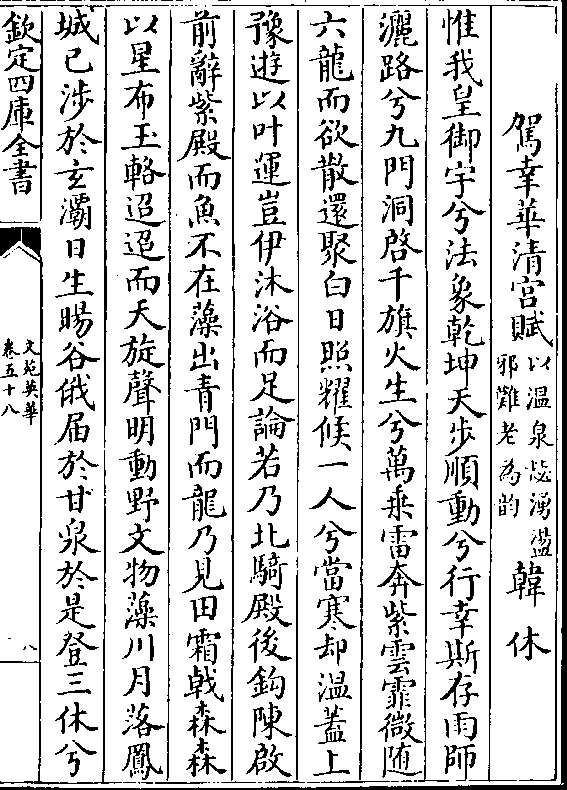 駕幸華清宮賦以温泉毖湧湢邪難老為韵韓休
惟我皇御宇兮法象乾坤天歩順動兮行幸斯存雨師
灑路兮九門洞啓千旗火生兮萬乗雷奔紫雲霏微随
六龍而欲散還聚白日照耀候一人兮當寒却温蓋上
豫遊以叶運豈伊沐浴而足論若乃北騎殿後鈎陳啟
前辭紫殿而魚不在藻出青門而龍乃見田霜戟森森
以星布玉輅迢迢而天旋聲明動野文物藻川月落鳳
城已渉於玄灞日生暘谷俄届於甘泉於是登三休兮
欽定四庫全書
文苑英華
卷五十八
八